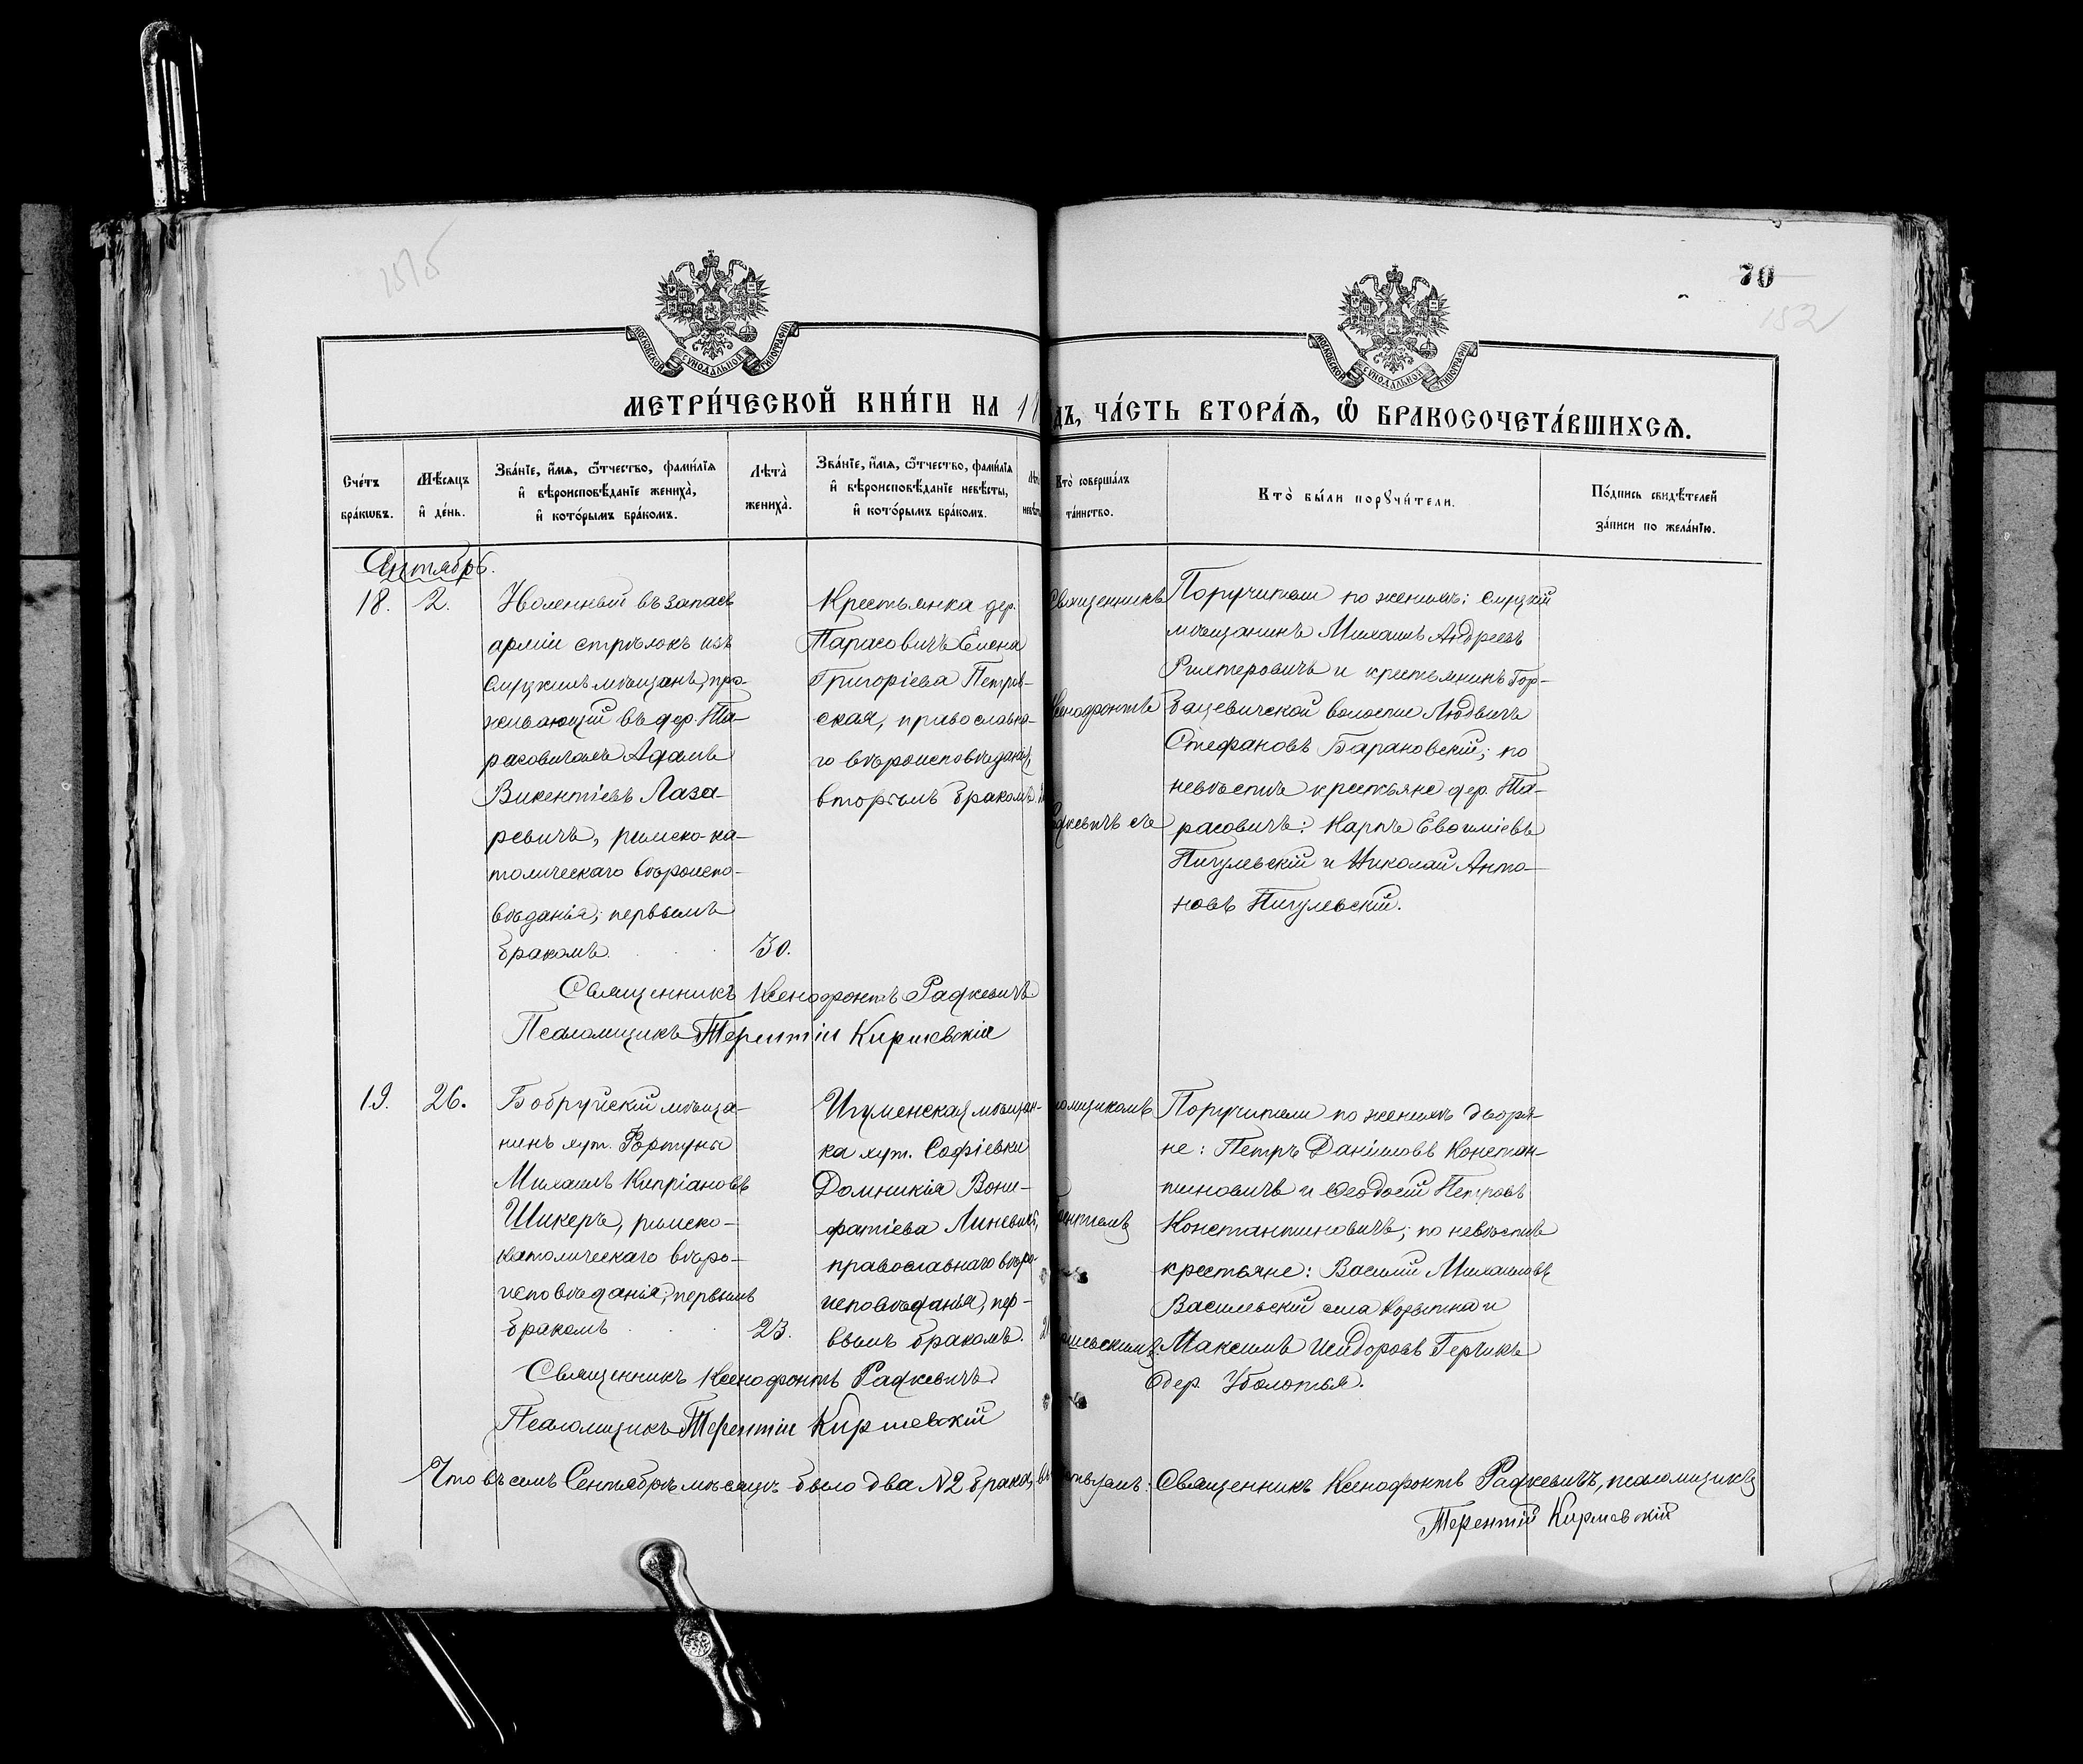 70
152
МОСКОВСКОЙ СѴНОДАЛЬНОЙ ТИПОГРАФІИ
МОСКОВСКОЙ СѴНОДАЛЬНОЙ ТИПОГРАФІИ
МЕТРИ́ЧЕСКОЙ КНИ́ГИ НА 1
ДЪ, ЧА́СТЬ ВТОРА́Ѧ, Ѡ҆ БРАКОСОЧЕТА́ВШИХСѦ.
Сче́тъ бра́ковъ.
Мѣ́сѧцъ и҆ де́нь.
Зва́нїе, и҆́мѧ, ѻ҆́тчество, фами́лїѧ и҆ вѣроисповѣ́данїе жениха̀, и҆ кото́рымъ бра́комъ.
Лѣта̀ жениха̀.
Зва́нїе, и҆́мѧ, ѻ҆́тчество, фами́лїѧ и҆ вѣроисповѣ́данїе невѣ́сты, и҆ кото́рымъ бра́комъ.
Кто̀ соверша́лъ та́инство.
Кто̀ бы́ли порꙋчи́тели.
По́дпись свидѣ́телей за́писи по жела́нїю.
Сентябрь.
18.
2.
Уволенный въ запасъ
арміи стрѣлокъ изъ
слуцкихъ мѣщанъ, про-
живающій въ дер. Та-
расовичахъ Адамъ
Викентіевъ Лаза-
ревичъ, римско-ка-
толическаго вѣроиспо-
вѣданія, первымъ
бракомъ.
30.
Крестьянка дер.
Тарасовичъ Елена
Григоріева Петров-
ская, православна-
го вѣроисповѣданія,
вторымъ бракомъ.
Священникъ
Ксенофонтъ
Радкевичъ съ
Поручители по женихѣ: слуцкій
мѣщанинъ Михаилъ Андреевъ
Рихтеровичъ и крестьянинъ Гор-
бацевичской волости Людвигъ
Стефановъ Барановскій; по
невѣстѣ крестьяне дер. Та-
расовичъ: Карпъ Евѳиміевъ
Пигулевскій и Николай Анто-
новъ Пигулевскій.
Священникъ Ксенофонтъ Радкевичъ
Псаломщикъ Терентій Киркевскій
19.
26.
Бобруйскій мѣща-
нинъ хут. Фортуны
Михаилъ Кипріановъ
Шикеръ, римско-
католическаго вѣро-
исповѣданія, первымъ
бракомъ
23.
Игуменская мѣщан-
ка хут. Софіевки
Домникія Вони-
фатіева Линевичъ,
православнаго вѣро-
исповѣданія, пер-
вымъ бракомъ.
Поручители по женихѣ дворя-
не: Петръ Даніиловъ Констан-
тиновичъ и Ѳеодосій Петровъ
Константиновичъ; по невѣстѣ
крестьяне: Василій Михаиловъ
Васильевскій села и
Максимъ Исидоровъ Герчикъ
дер. Уболотья.
Священникъ Ксенофонтъ Радкевичъ
Псаломщикъ Терентій Киркевскій
Что въ семъ Сентябрѣ мѣсяцѣ было два N2 брака, Священникъ Ксенофонтъ Радкевичъ, псаломщикъ
Терентій Киркевскій